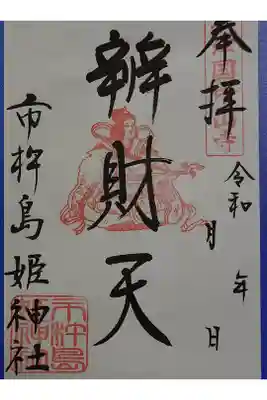 奉拝
令和 年
月 日
辨財天
市杵島姫神社